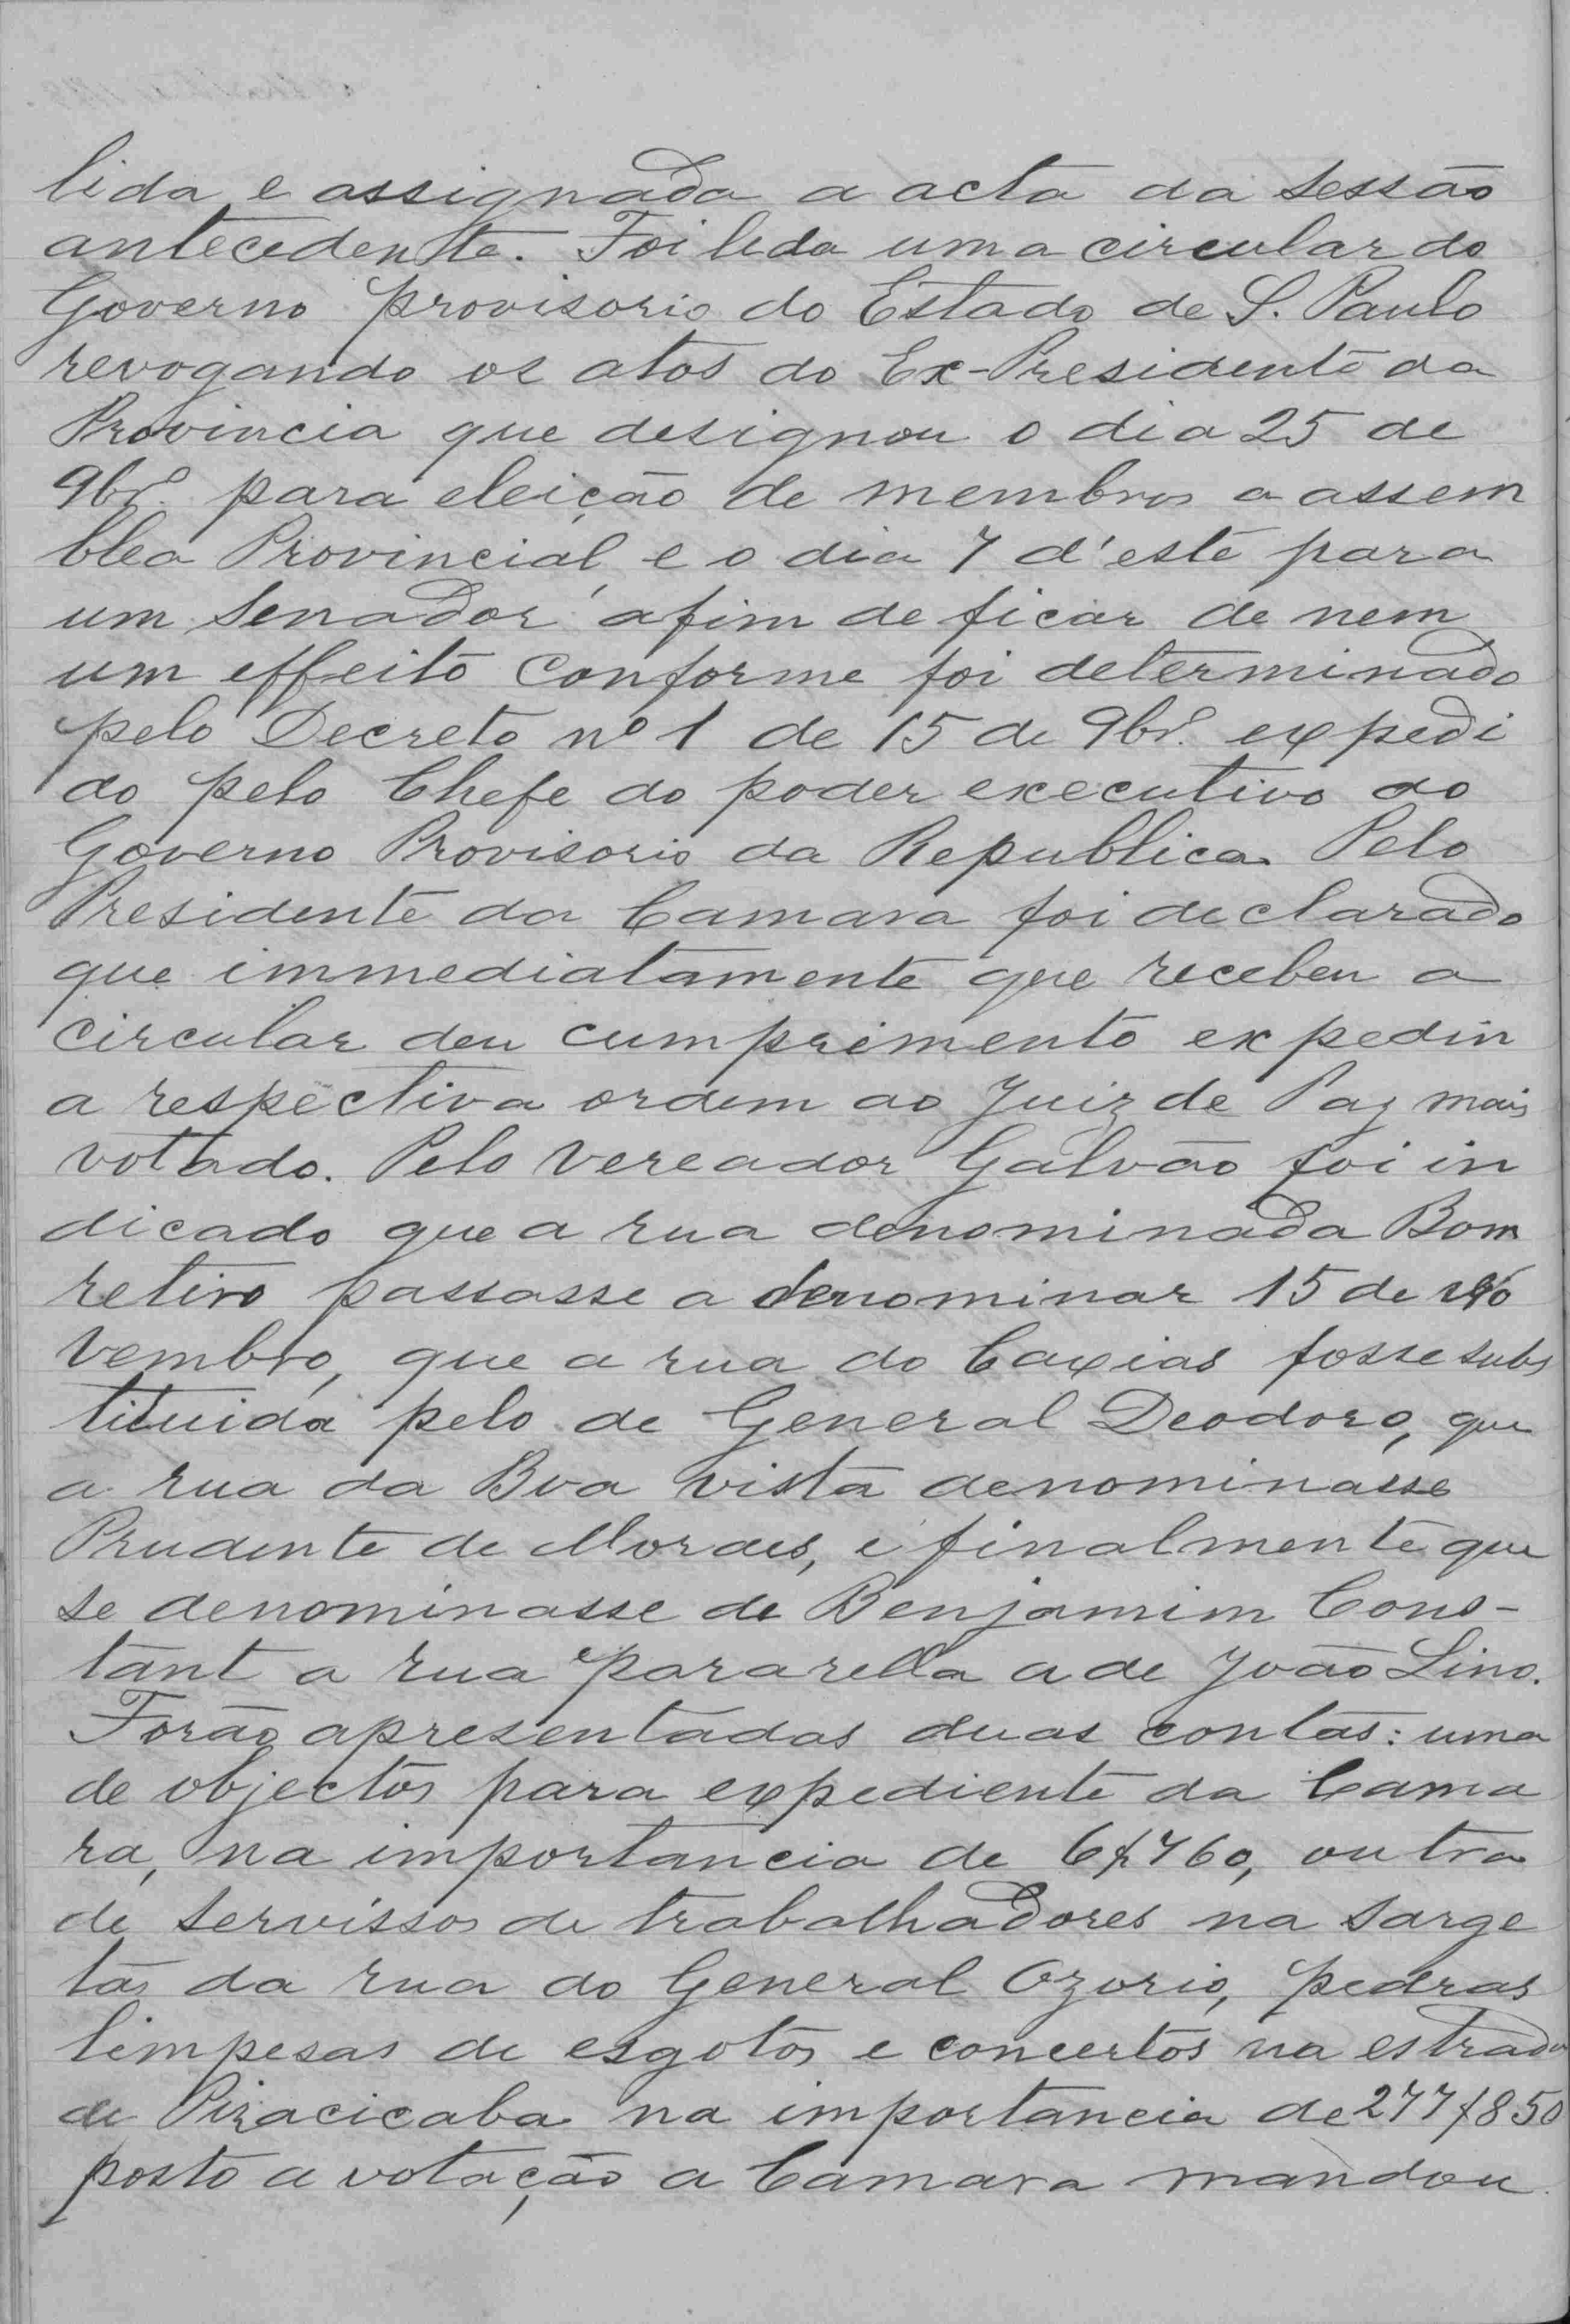 lida e assignada a acta da sessão
antecedente. Foi lida uma circular do
Governo provisorio do Estado de S. Paulo
revogando os atos do Ex-Presidente da
Provincia que designou o dia 25 de
9br.º para eleição de membros a assem
blea Provincial, e o dia 7 d'este para
um Senador afim de ficar de nem
um effeito conforme foi determinado
pelo Decreto nº 1 de 15 de 9br.º expedi
do pelo Chefe do poder executivo do
Governo Provisorio da Republica. Pelo
Presidente da Camara foi declarado
que immediatamente que recebeu a
circular deu cumprimento expedin
a respectiva ordem ao Juiz de Paz mais
votado. Pelo Vereador Galvão foi in
dicado que a rua denominada Bom
retiro passasse a denominar 15 de no
vembro, que a rua do Caxias fosse subs
tituida pelo de General Deodoro, que
a rua da Boa vista denominasse
Prudente de Moraes, e finalmente que
se denominasse de Benjamim Cons-
tant a rua pararella a de João Lino.
Forão apresentadas duas contas: uma
de objectos para expediente da Cama
ra, na importancia de 6$760, outra
de servissos de trabalhadores na sarge
tas da rua do General Ozorio, pedras
limpesas de esgotos e concertos na estrada
de Piracicaba na importancia de 277$850
posto a votação a Camara mandou